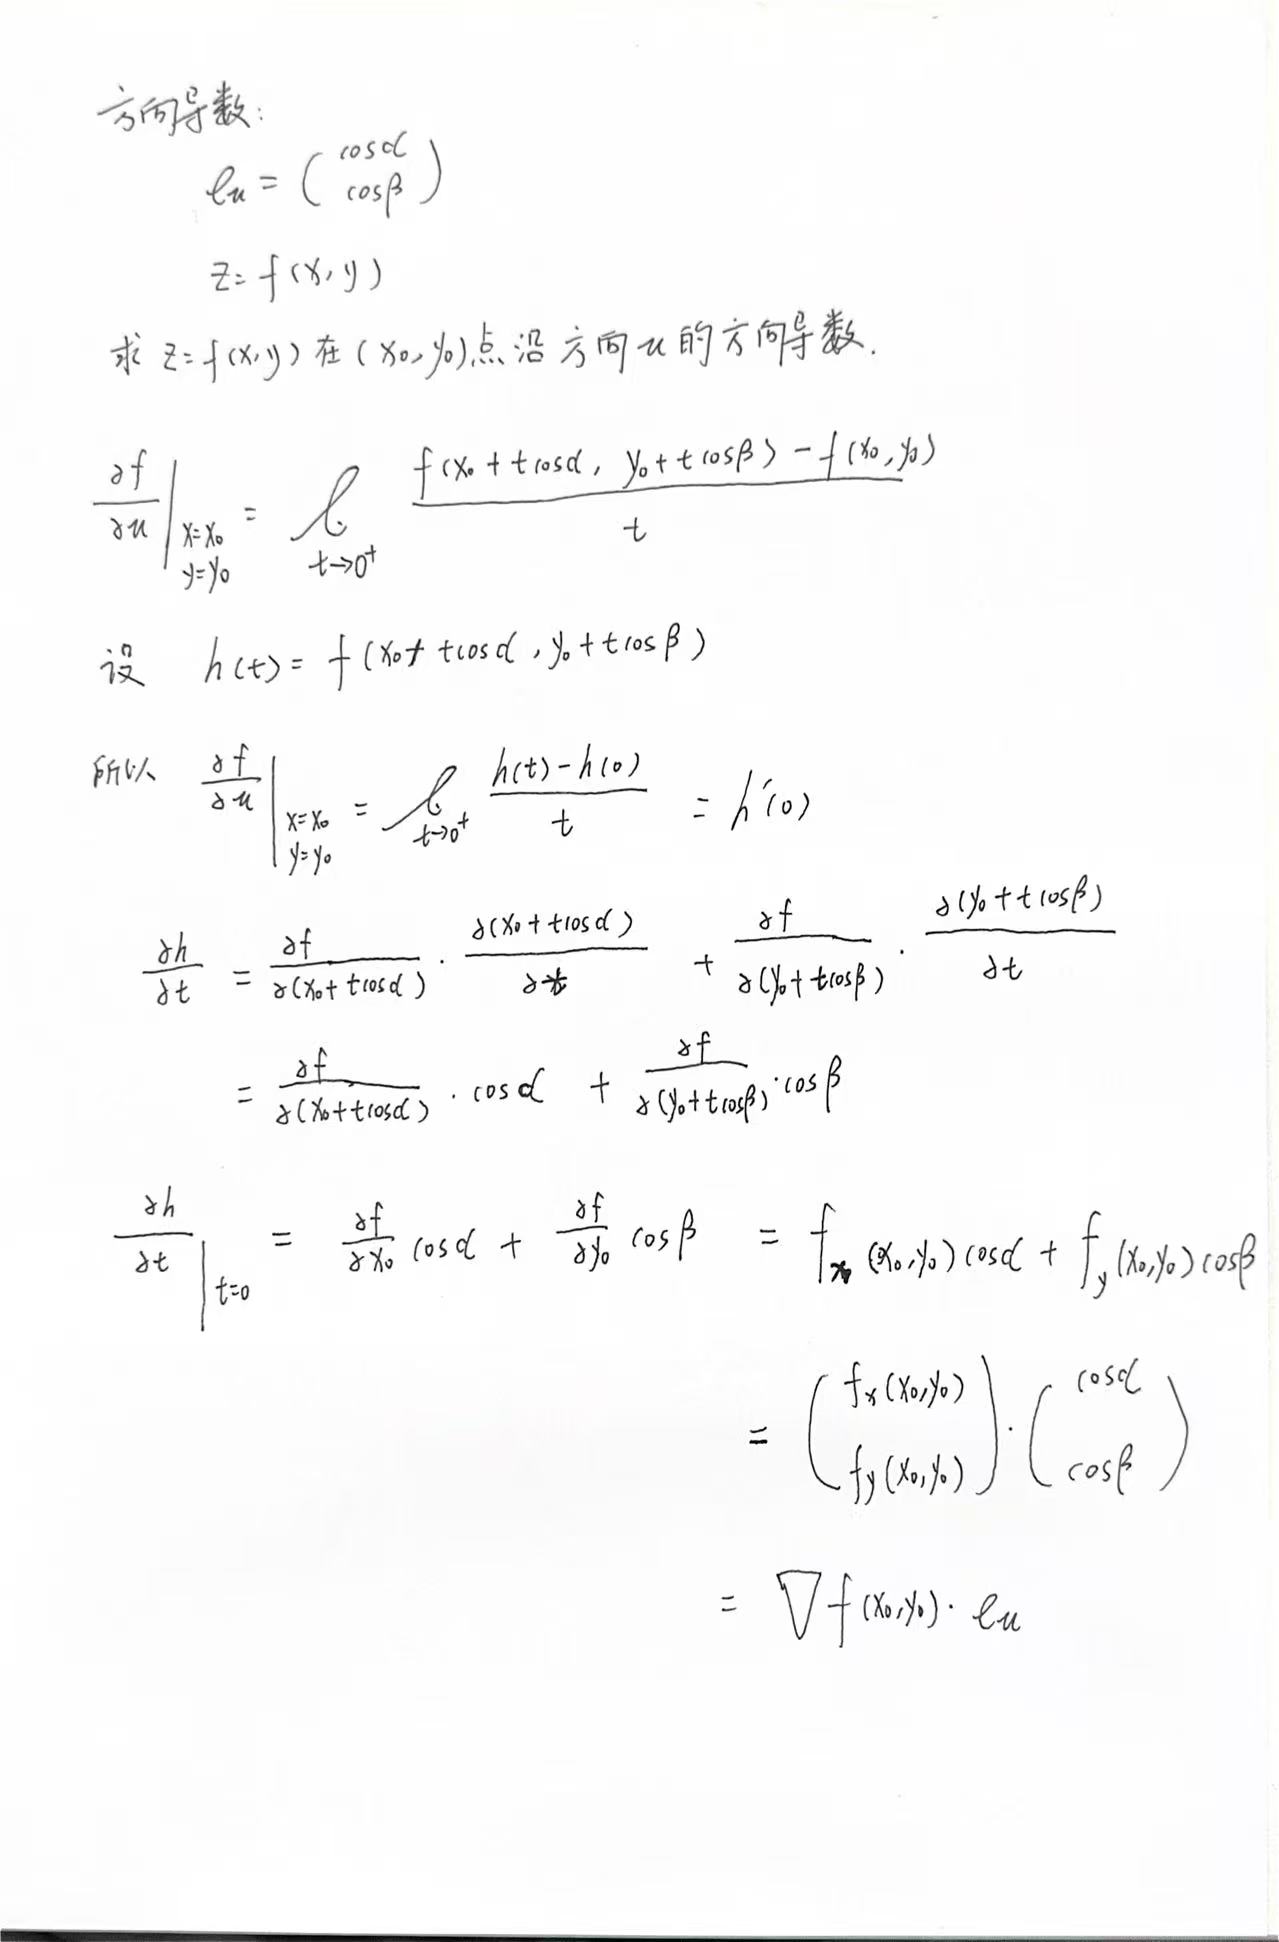 方向导数:
eᵤ = ( cosα
cosβ )
z = f(x, y)
求 z = f(x,y) 在 (x₀, y₀) 点沿方向u的方向导数.
∂f/∂u |x=x₀ y=y₀ = l t→0⁺ f(x₀ + tcosα, y₀ + tcosβ) − f(x₀, y₀) / t
设 h(t) = f(x₀ + tcosα, y₀ + tcosβ)
所以 ∂f/∂u |x=x₀ y=y₀ = l t→0⁺ h(t) − h(0) / t = h′(0)
∂h/∂t = ∂f/∂(x₀ + tcosα) · ∂(x₀ + tcosα)/∂t + ∂f/∂(y₀ + tcosβ) · ∂(y₀ + tcosβ)/∂t
= ∂f/∂(x₀ + tcosα) · cosα + ∂f/∂(y₀ + tcosβ) · cosβ
∂h/∂t |t=0 = ∂f/∂x₀ cosα + ∂f/∂y₀ cosβ = fₓ(x₀, y₀) cosα + f_y(x₀, y₀) cosβ
= ( fₓ(x₀, y₀) f_y(x₀, y₀) ) · ( cosα cosβ )
= ∇f(x₀, y₀) · eᵤ